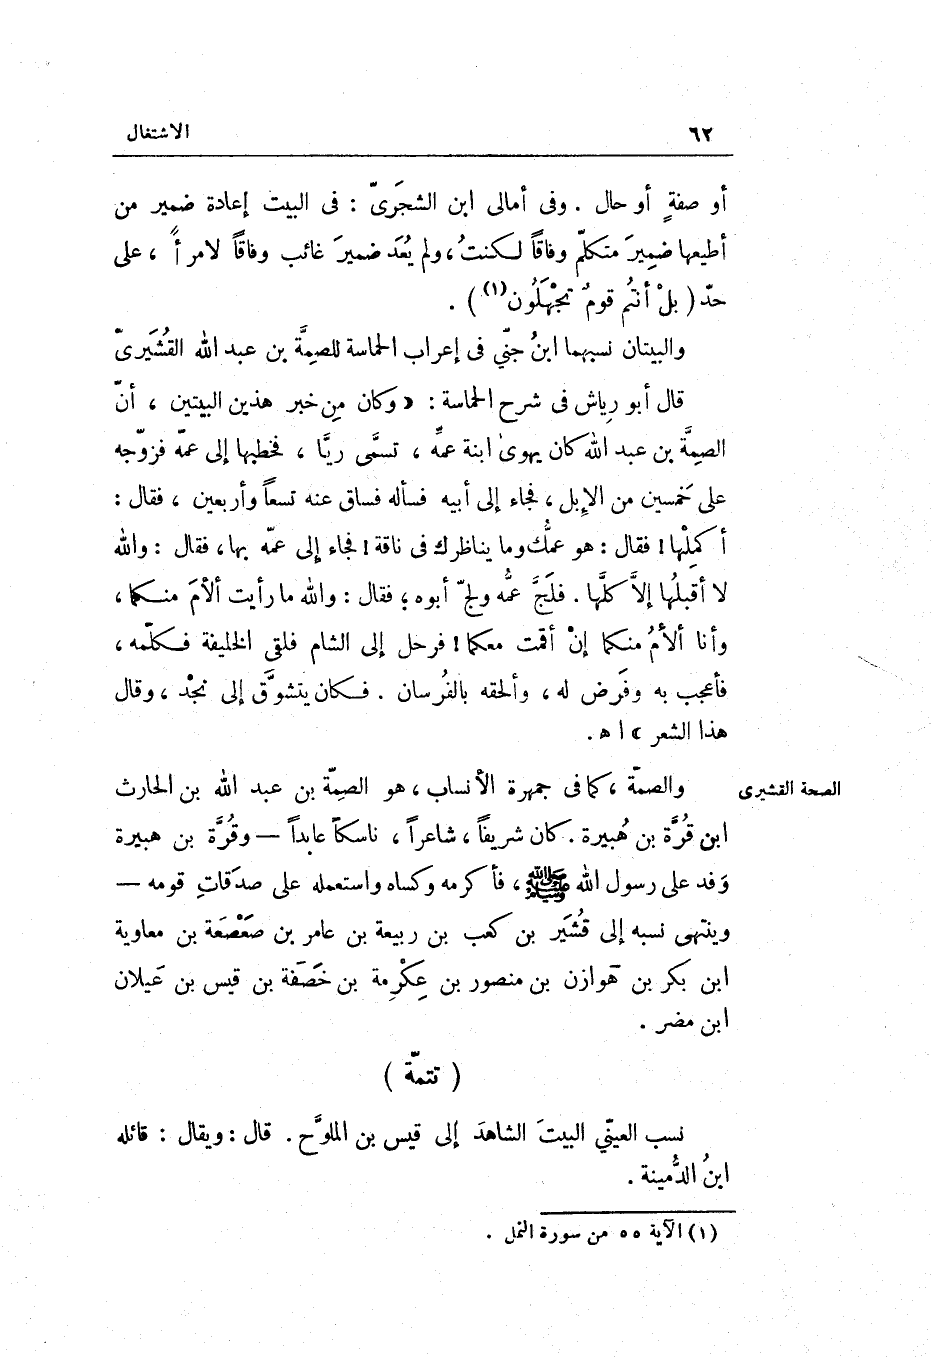 ٦٢ الاشتغال
أو صفةٍ أو حال . وفى أمالى ابن الشجَرىّ : فى البيت إعادة ضمير من
أطيعها ضميرَ متكلّم وفاقًا لكنتُ ، ولم يُعَد ضميرَ غائب وفاقًا لامرأً ، على
حدّ ( بلْ أنتُم قومٌ تجْهَلُون(١) ) .
والبيتان نسبهما ابنُ جنّي فى إعراب الحماسة للصِمَّة بن عبد الله القُشَيرىّ
قال أبو رِياش فى شرح الحماسة : « وكان مِن خبر هذين البيتين ، أنّ
الصِمَّة بن عبد الله كان يهوىٰ ابنة عمّه ، تسمَّى ريَّا ، فخطبها إلى عمّه فزوّجه
على خَمسين من الإبل ، فجاء إلى أبيه فسأله فساق عنه تسعاً وأربعين ، فقال :
أكمِلْها ! فقال : هو عمُّك وما يناظرك فى ناقة ! فجاء إلى عمّه بها ، فقال : والله
لا أقبلُها إلاَّ كلَّها . فلَجَّ عمُّه ولجّ أبوه ؛ فقال : والله ما رأيت ألأمَ منكما ،
وأنا ألأمُ منكما إنْ أقمت معكما ! فرحل إلى الشام فلقى الخليفة فكلّمه ،
فأعجب به وفَرَض له ، وألحقه بالفُرسان . فكان يتشوَّق إلى نجْد ، وقال
هذا الشعر » ا ه .
والصمّة ، كما فى جمهرة الأنساب ، هو الصِمّة بن عبد الله بن الحارث
الصحة القشيرى
ابن قُرَّة بن هُبيرة . كان شريفًا ، شاعراً ، ناسكاً عابداً — وقُرَّة بن هبيرة
وَفد على رسول الله ﷺ ، فأكرمه وكساه واستعمله على صدَقاتِ قومه —
وينتهى نسبه إلى قُشَير بن كعب بن ربيعة بن عامر بن صَعْصَعة بن معاوية
ابن بكر بن هَوازن بن منصور بن عِكْرِمة بن خَصَفة بن قيس بن عَيلان
ابن مضر .
( تتمّة )
نسب العينّي البيتَ الشاهدَ إلى قيس بن الملوَّح . قال : ويقال : قائله
ابنُ الدُّمينة .
(١) الآية ٥٥ من سورة النمل .